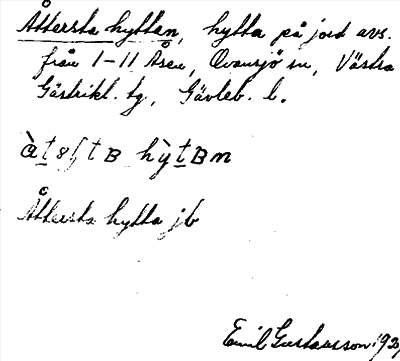 Åttersta hyttan, hytta på jord avs.
från 1-11 Åsen, Ovansjö sn, Västra
Gästrikl. tg, Gävleb. l.
hỳtBn
Åttersta hytta jb
Emil Gustavsson 193